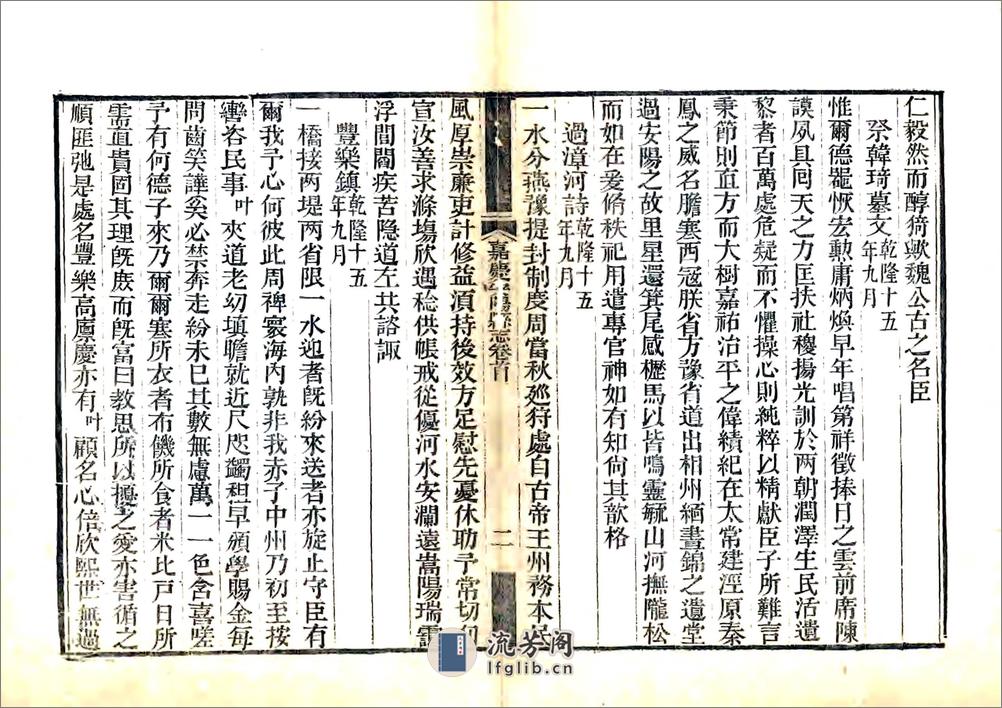 仁毅然而醇猗歟魏公古之名臣
祭韓琦墓文乾隆十五年九月
惟爾德器恢去勲庸炳煥早年唱第祥徵捧日之雲前席陳
謨夙具回天之力匡扶社稷揚光訓於两朝潤澤生民活遺
黎者百萬處危疑而不懼操心則純粹以精獻臣子所難言
秉節則直方而大樹嘉祐治平之偉績紀在太常建涇原秦
鳳之威名膽寒西冦朕省方豫省道出相州緬晝錦之遺堂
過安陽之故里星還箕尾感櫪馬以皆鳴靈毓山河撫隴松
而如在爰脩秩祀用遣專官神如有知尙其歆格
過漳河詩乾隆十五年九月
一水分燕豫提封制度周當秋廵狩處自古帝王州務本
風厚崇廉吏計修益湏持後效方足慰先憂休助予常切
嘉慶安陽縣志卷首
二
宣汝善求滌場欣遇稔供帳戒從優河水安瀾遠嵩陽瑞靄
浮閭閻疾苦隐道左共諮諏
豐樂鎮乾隆十五年九月
一橋接两堤两省限一水迎者旣紛來送者亦旋止守臣有
爾我予心何彼此周裨寰海内孰非我赤子中州乃初至按
轡咨民事叶夾道老幼填瞻就近尺咫蠲租早頒學賜金每
問齒笑譁奚必禁奔走紛未已其數無慮萬一一色含喜嗟
予有何德子來乃爾爾寒所衣者布饑所食者米比戸日所
需直貴固其理旣庶而旣富曰教思所以擾之愛亦害循之
順匪弛是處名豐樂高廪慶亦有叶顧名心倍欣熙世無過
流芳阁
lfglib.cn